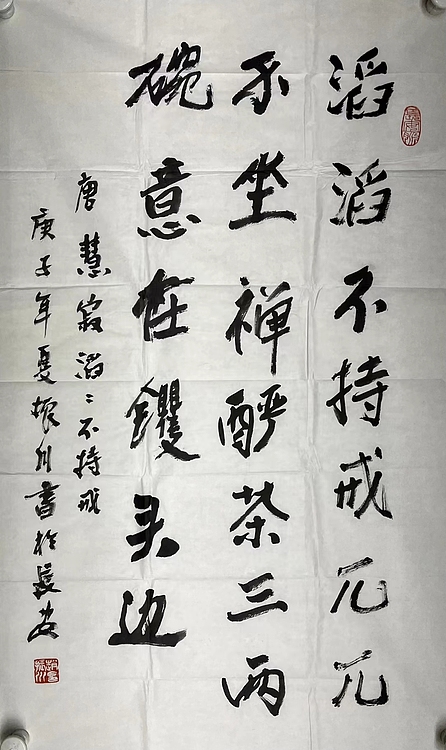 滔滔不持戒兀兀
不坐禅酽茶三两
碗意在钁头边
唐慧寂滔〻不持戒
庚子年夏振川書於長安